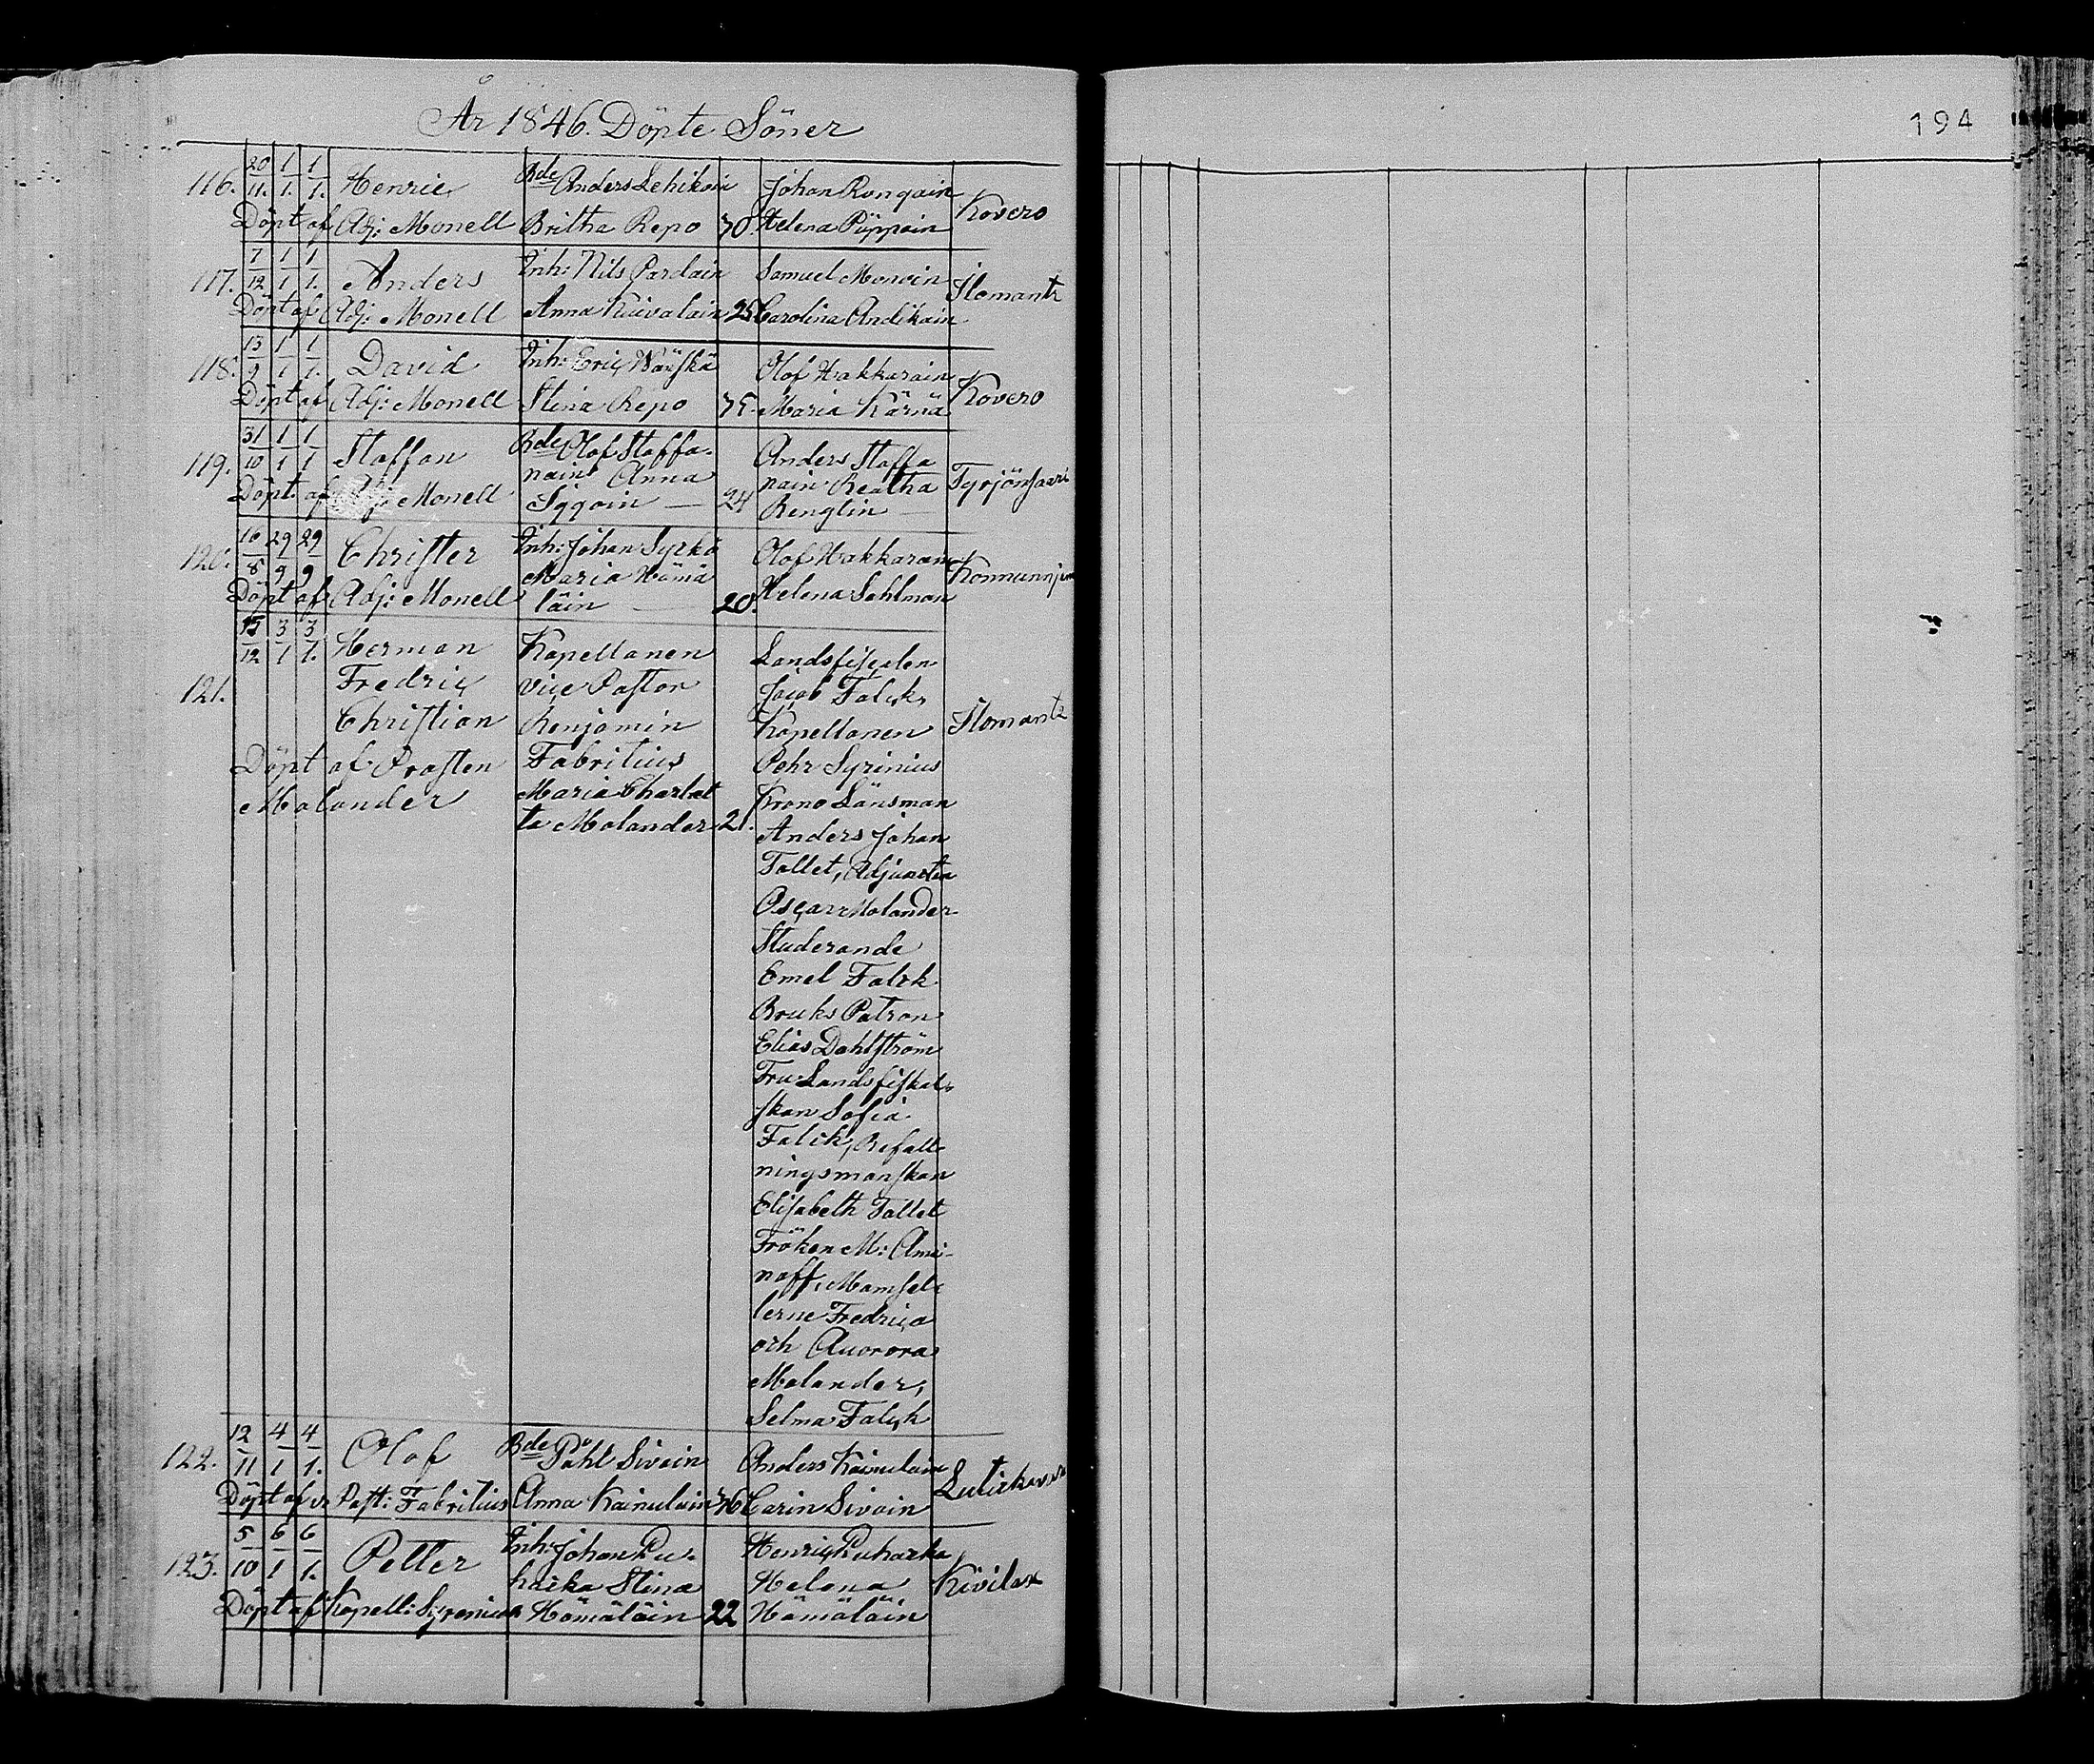 År 1846. Döpte Söner
194
20 1 1
116. 11. 1. 1. Henric Bde Anders Lehikoin Johan Rongain Kovero
Döpt af Adj: Monell Britha Repo 30. Helena Pöppöin
7 1 1
117. 12 1 1. Anders Inh: Nils Parlain Samuel Monoin Ilomants
Döpt af Adj: Monell Anna Kuivalain 25 Carolina Andikain
13 1 1
118. 1 1. David Inh: Eric Wäyskä Olof Hakkarain Kovero
Döpt af Adj: Monell Stina Repo 35. Maria Kärnä
31 1 1
119. 10 1 1 Staffan Bde Olof Staffa- Anders Staffa
nain Anna nain Beatha Tyrjönsaari
Döpt af Adj: Monell Siqqoin — 24 Renglin —
16 29 29
120. 8 9 9 Christer Inh: Johan Syrkö Olof Hakkarain
Maria Hämä
Döpt af Adj: Monell läin — 20. Helena Sahlman
15 3 3
12 1 1. Herman Kapellanen Landsfiscalen
121. Fredric vice Pastor Jacob Falck,
Christian Benjamin Kapellanen Ilomants
Döpt af Prosten Fabritius Pehr Syrinius
Molander Maria Charlot Krono Länsman
ta Molander 21. Anders Johan
Tallet, Adjuncten
Oscar Molander
Studerande
Emel Falck
Bruks Patron
Elias Dahlström
Fru Landsfiskal-
skan Sofia
Falck, Befall-
ningsmanskan
Elisabeth Tallet
Fröken M: Ami-
noff, Mamsel-
lerne Fredrica
och Auorora
Molander,
Selma Falck
12 4 4
122. 11 1 1. Olof Bde Påhl Sivoin Anders Kainulain
Döpt af v: Past: Fabritius Anna Kainulain 36 Carin Sivoin
5 6 6
123. 10 1 1. Petter Inh: Johan Pu- Henric Puharka
harka Stina Helena Kivilax
Döpt af Kapell: Syrenius Hämäläin 22 Hämäläin